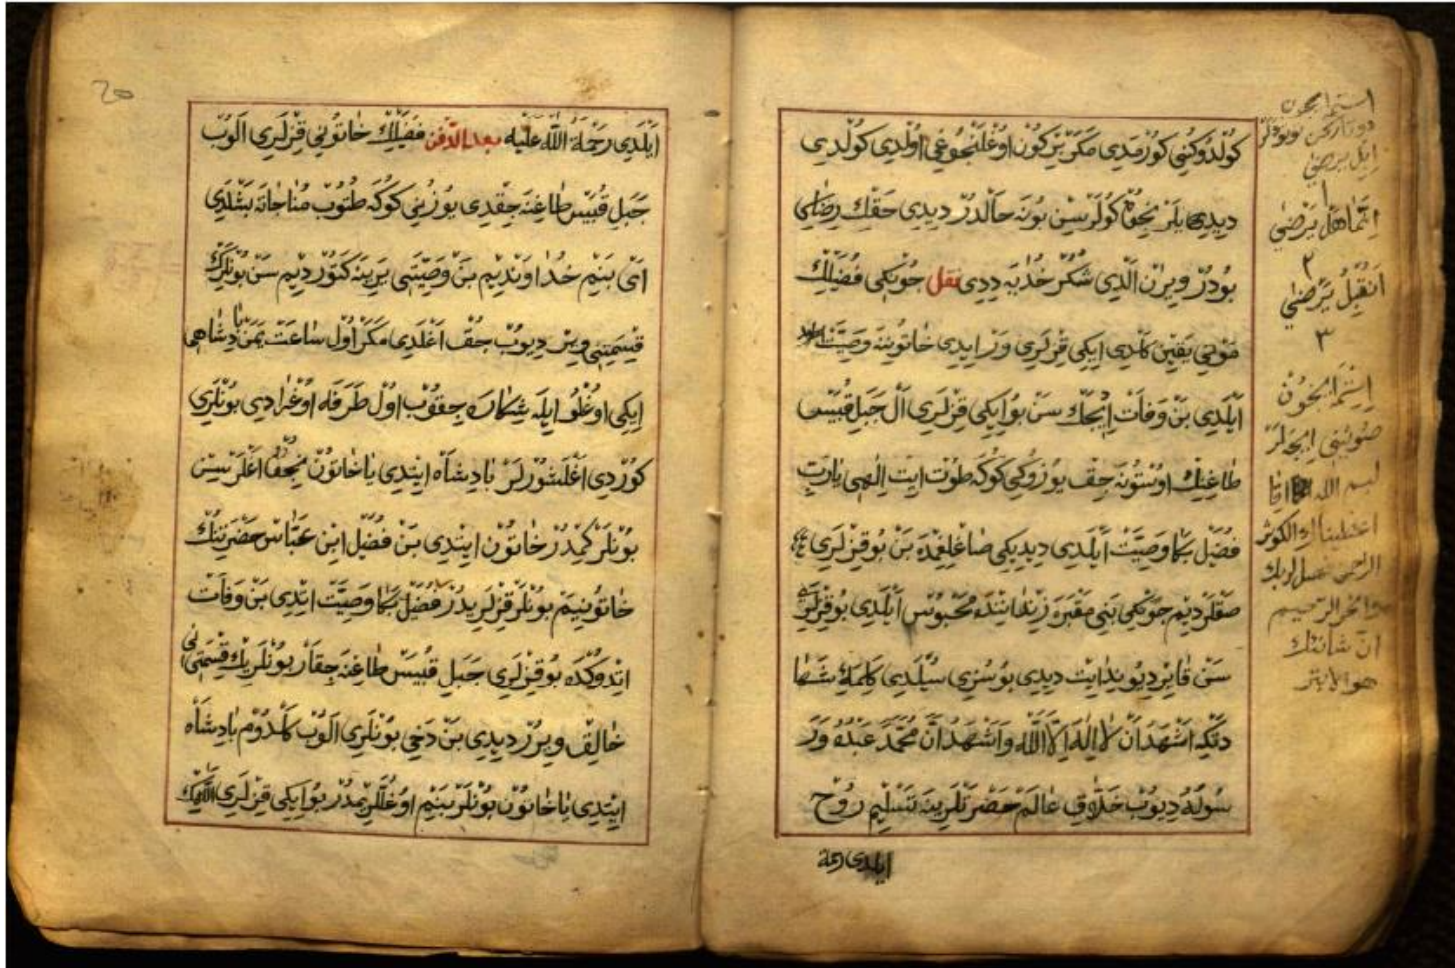 كُولْدُوكُنِي كُورْمَدِي مَكَرْ بِرْ كُونْ اوُغْلَنْجُوغِي اوُلْدِي كُولْدِي
دِيدِيلَرْ نِيجُونْ كُولَرْسِنْ بُونَه حَالْدُرْ دِيدِي حَقْكْ رِضَاسِي
بُودُرْ وِيرَنْ اَلْدِي شُكُرْ خُدَايَه دِدِي نقل چُونْكِي فُضَيْلِكْ
مَوْتِي يَقِينْ كَلْدِي اِيكِي قِزْلَرِي وَرْ اِيدِي خَاتُونِنَه وَصِيَّتْ
اَيْلَدِي بَنْ وَفَاتْ اِيدِيجَكْ سَنْ بُو اِيكِي قِزْلَرِي اَلْ جَبَلِ قُبَيْسْ
طَاغِنِكْ اوُسْتُونَه چِقْ يُوزُوكِي كُوكَه طُوتْ اَيِتْ اِلٰهِي يَارَبِّ
فُضَيْل بَكَا وَصِيَّتْ اَيْلَدِي دِيدِيكِي صَاغْلِغِمْدَه بَنْ بُو قِزْلَرِي
صَقْلَرْدِيمْ چُونْكِي بَنِي مَقْبَرَه زِنْدَانِنْدَه مَحْبُوسْ اَيْلَدِي بُو قِزْلَرِي
سَنْ قَايِرْ دِيُو نِدَا اَيِتْ دِيدِي بُو سُزِي سُيْلَدِي كَلِمَهِٔ شَهَا
دَتْكَه اَشْهَدُ اَنْ لَا اِلٰهَ اِلَّا اللّٰه وَاَشْهَدُ اَنَّ مُحَمَّدً عَبْدُهُ وَرَ
سُولُهُ دِيُوبْ خَلَّاقِ عَالَمْ حَضْرَتْلَرِينَه تَسْلِيمِ رُوحْ
ايلدى رحمة
استمايچون
ايل يرضنى
١
٢
اَنْقُبِلُ يَرْضَنِي
٣
اِسِتْمَا ايچُونْ
صُويِنِي اِيچَه لَرْ
بسم الله انا
اعطيناك الكوثر
الرحمن فصل لربك
وانحر الرحيم
ان شانئك
هو الابتر
20
اَيْلَدِي رَحْمَةُ اللّٰهِ عَلَيْه بعد الدّفن فُضَيْلِكْ خَاتُونِي قِزْلَرِي اَلُوبْ
جَبَلِ قُبَيْسْ طَاغِنَه چِقْدِي يُوزُنِي كُوكَه طُتُوبْ مُنَاجَاتَه بَشْلَدِي
اَيْ بَنِمْ خُدَاوَنْدِيمْ بَنْ وَصِيَّتِي يَرِينَه كَتُورْدِيمْ سَنْ بُونْلَرِكْ
قِسْمَتِنِي وِيرْ دِيُوبْ چُقْ اَغْلَدِي مَكَرْ اَوُلْ سَاعَتْ يَمَنْ پَادِشَاهِي
اِيكِي اوُغْلُو اِيلَه شِكَارَه چِقُوبْ اوُلْ طَرَفَه اوُغْرَادِي بُونْلَرِي
كُورْدِي اَغْلَشُورْلَرْ پَادِشَاهْ اَيِتْدِي يَا خَاتُونْ نِيچُونْ اَغْلَرْسِينْ
بُونْلَرْ كِمْدُرْ خَاتُونْ اَيِتْدِي بَنْ فُضَيْل اِبْنِ عَبَّاسْ حَضْرَتِنُكْ
خَاتُونِيَمْ بُونْلَرْ قِزْلَرِيدُرْ فُضَيْل بَكَا وَصِيَّتْ اِتْدِي بَنْ وَفَاتْ
اِتْدُوكْدَه بُو قِزْلَرِي جَبَلِ قُبَيْسْ طَاغِنَه چِقَارْ بُونْلَرِيكْ قِسْمَتِنِي
خَالِقْ وِيرُرْ دِيدِي بَنْ دَخِي بُونْلَرِي اَلُوبْ كَلْدُومْ پَادِشَاهْ
اَيِتْدِي يَا خَاتُونْ بُونْلَرْ بَنِمْ اوُغُلْلَرِيمْدُرْ بُو اِيكِي قِزْلَرِي